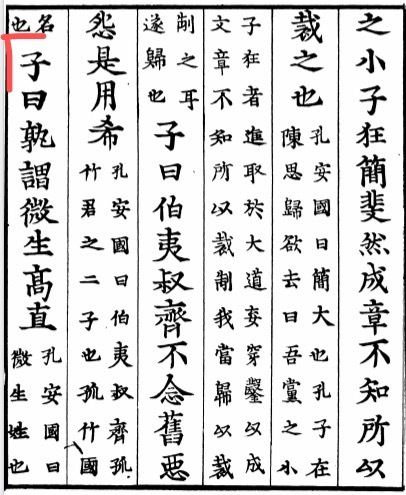 之小子狂簡斐然成章不知所以
裁之也
孔安國曰簡大也孔子在
陳思歸欲去曰吾黨之小
子狂者進取於大道妄穿鑿以成
文章不知所以裁制我當歸以裁
制之耳
遂歸也
子曰伯夷叔齊不念舊惡
怨是用希
孔安國曰伯夷叔齊孤
竹君之二子也孤竹國
名
也
子曰孰謂微生髙直
孔安國曰
微生姓也